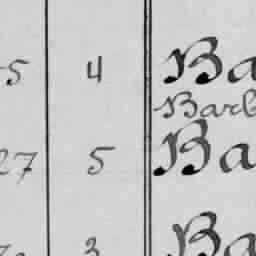 5 4 Ba
Barb
27 5 Ba
3 Ba